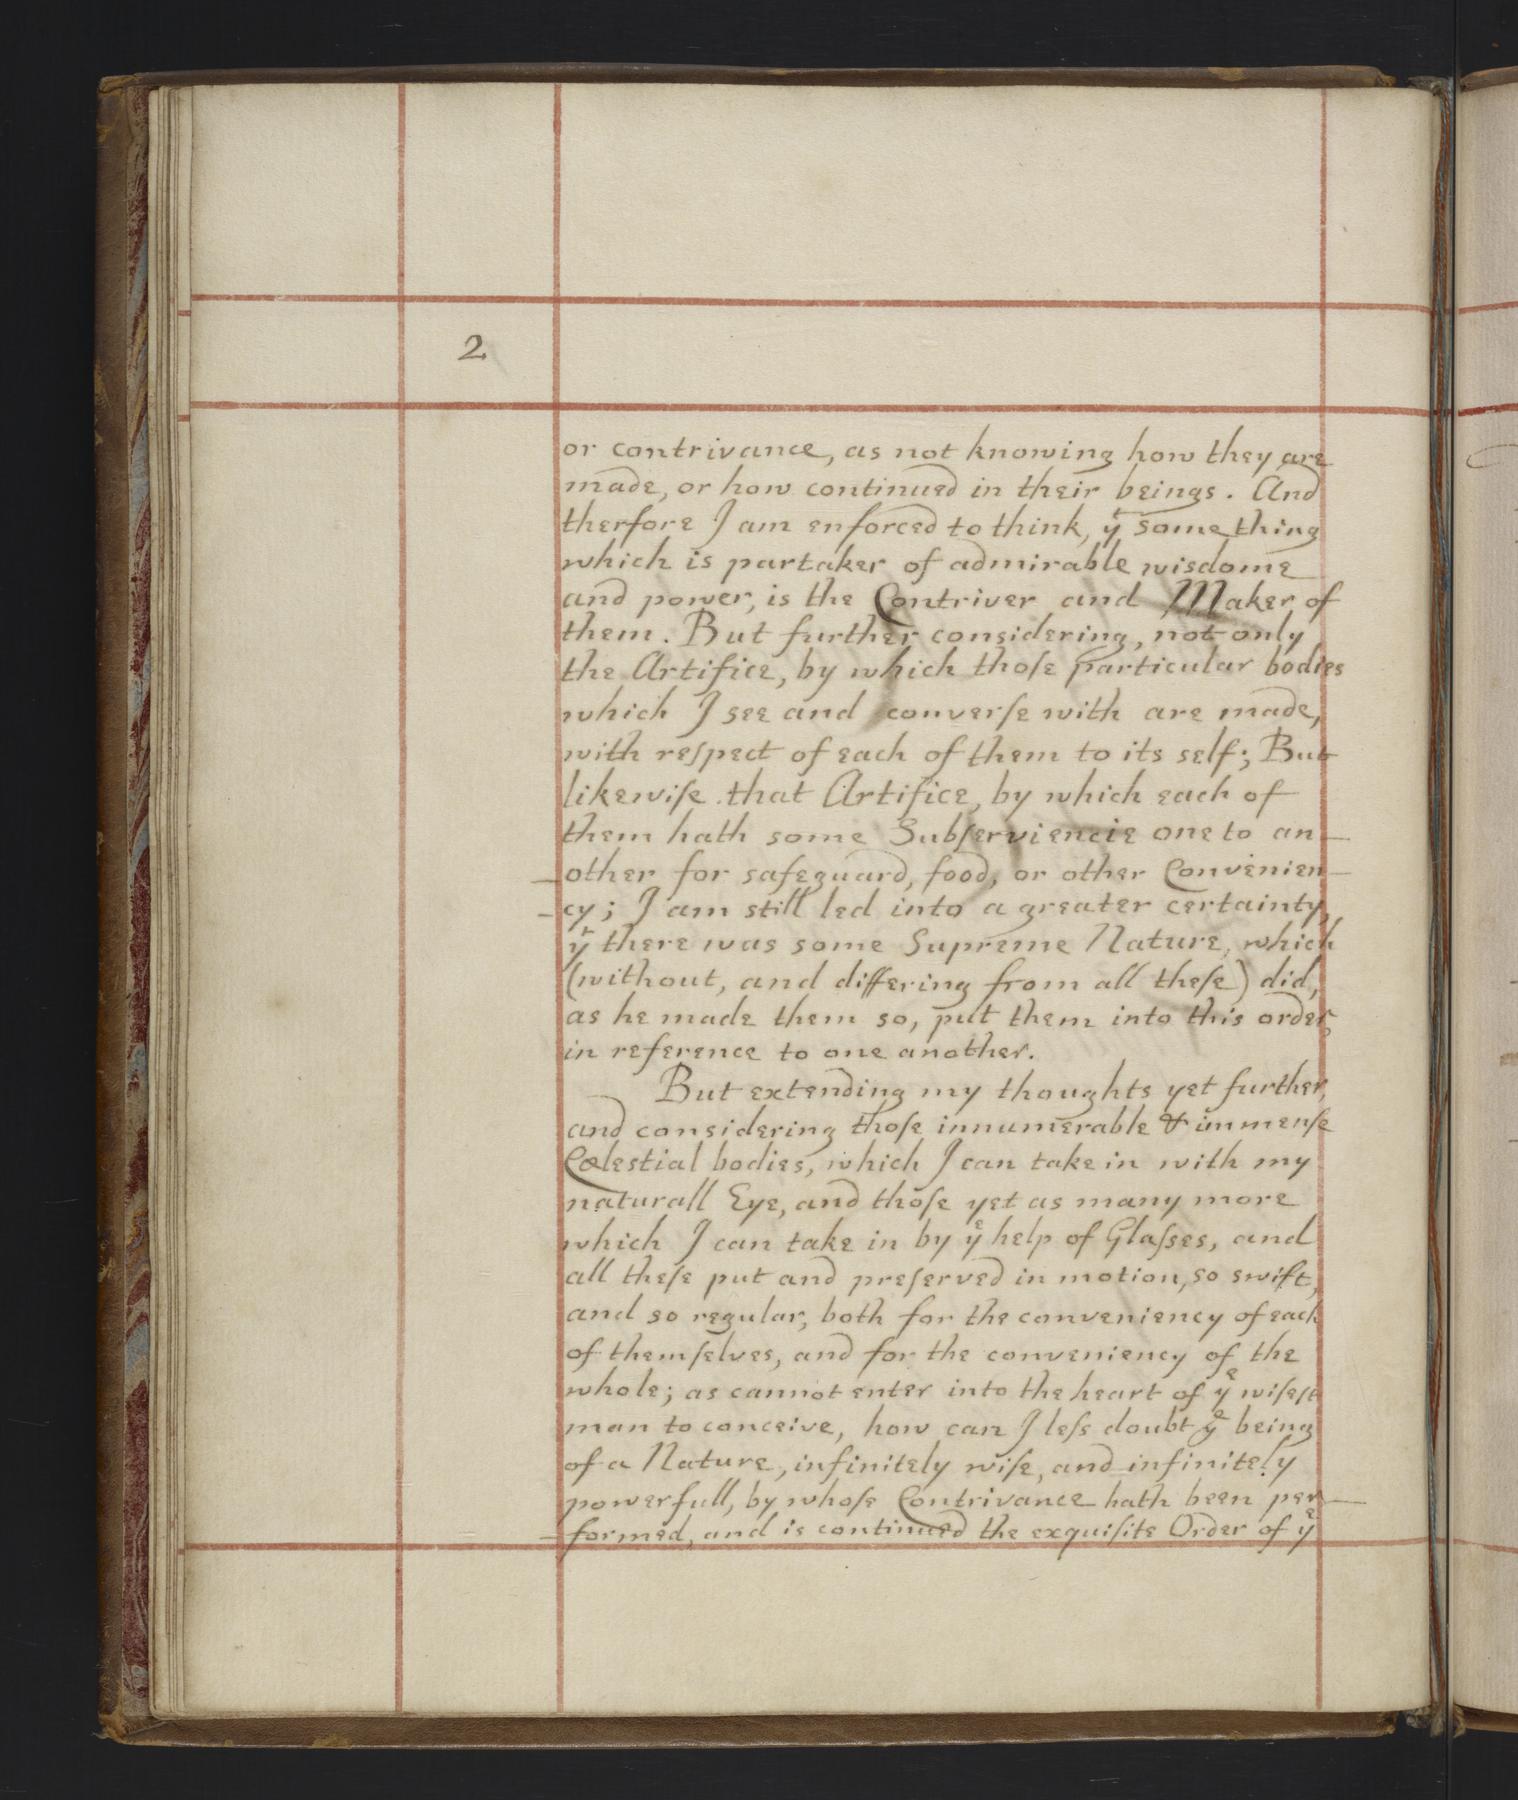 2
or contrivance, as not knowing how they are
made, or how continued in their beings. And
therfore I am enforced to think, yᵗ something
which is partaker of admirable wisdome
and power, is the Contriver and Maker of
them. But further considering, not only
the Artifice, by which thoſe particular bodies
which I see and converſe with are made,
with reſpect of each of them to its self; But
likewiſe that Artifice, by which each of
them hath some Subſerviencie one to an-
-other for safeguard, food, or other Convenien-
-cy; I am still led into a greater certainty,
yᵗ there was some Supreme Nature, which
(without, and differing from all theſe) did,
as he made them so, put them into this order,
in reference to one another.
But extending my thoughts yet further,
and considering thoſe innumerable & immenſe
Cœlestial bodies, which I can take in with my
naturall Eye, and thoſe yet as many more
which I can take in by yᵉ help of Glaſses, and
all theſe put and preſerved in motion, so swift,
and so regular, both for the conveniency of each
of themſelves, and for the conveniency of the
whole; as cannot enter into the heart of yᵉ wiſeſt
man to conceive, how can I leſs doubt yᵉ being
of a Nature, infinitely wiſe, and infinitely
powerfull, by whoſe Contrivance hath been per-
-formed, and is continued the exquiſite Order of yᵉ